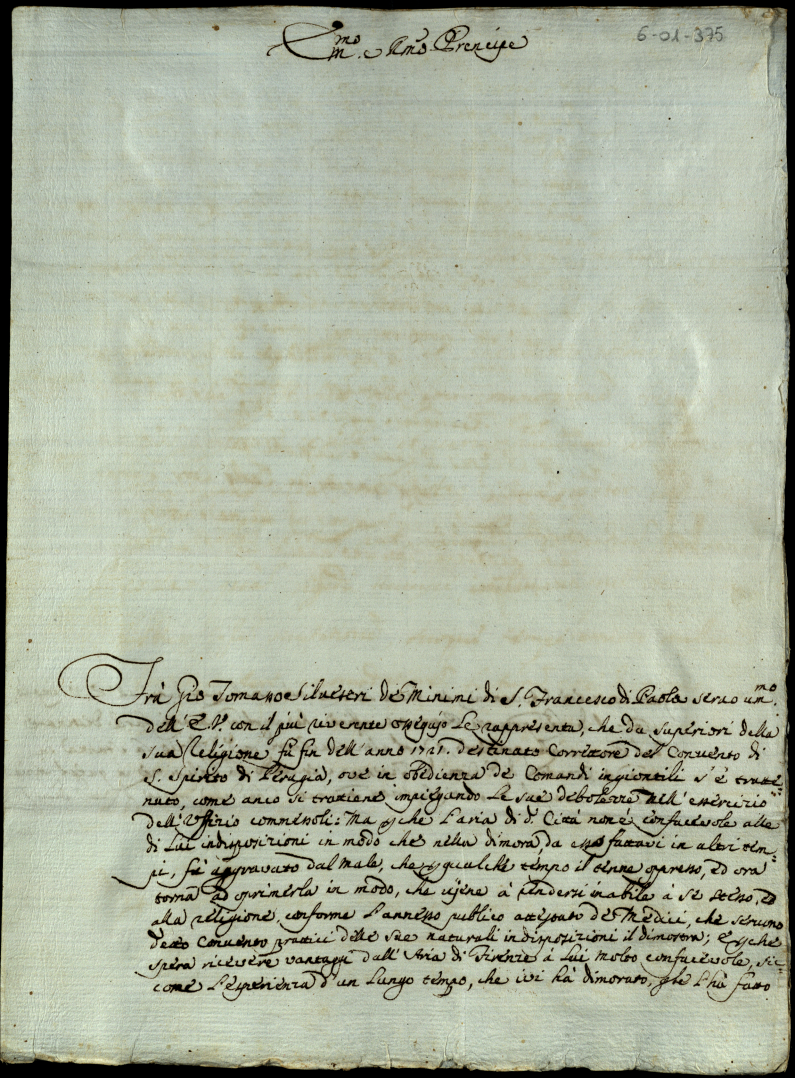 6-01-375
Em.mo e Rmo. Prencipe
Frà Gio Tomasso Silvestri de Minimi di S. Francesco di Paola servo um.mo
dell' E.V. con il più riverente ossequio Le rappresenta, che da Superiori della
sua Religione fù fin dell' anno 1721. destinato Correttore del Convento di
S. Spirito di Perugia, ove in obedienza de Comandi ingiontili s' è tratte=
nuto, come anco si trattiene impiegando Le sue debolezze nell' essercizio
dell' Uffizio commessoli: Ma p che L'aria di d.a Città non è confacevole alle
di Lui indisposizioni in modo che nella dimora, da esso fattavi in altri tem=
pi, fù aggravato dal male, che p qualche tempo il tenne oppresso, ed ora
torna ad oprimerlo in modo, che viene à rendersi inabile à se stesso, ed
alla religione, conforme L'annesso publico attestato de Medici, che servono
detto Convento prattici delle sue naturali indisposizioni il dimostra; E p che
spera ricevere vantaggi dall' Aria di Firenze à Lui molto confacevole, sic=
come L'esperienza d'un Lungo tempo, che ivi hà dimorato, gle L'hà fatto